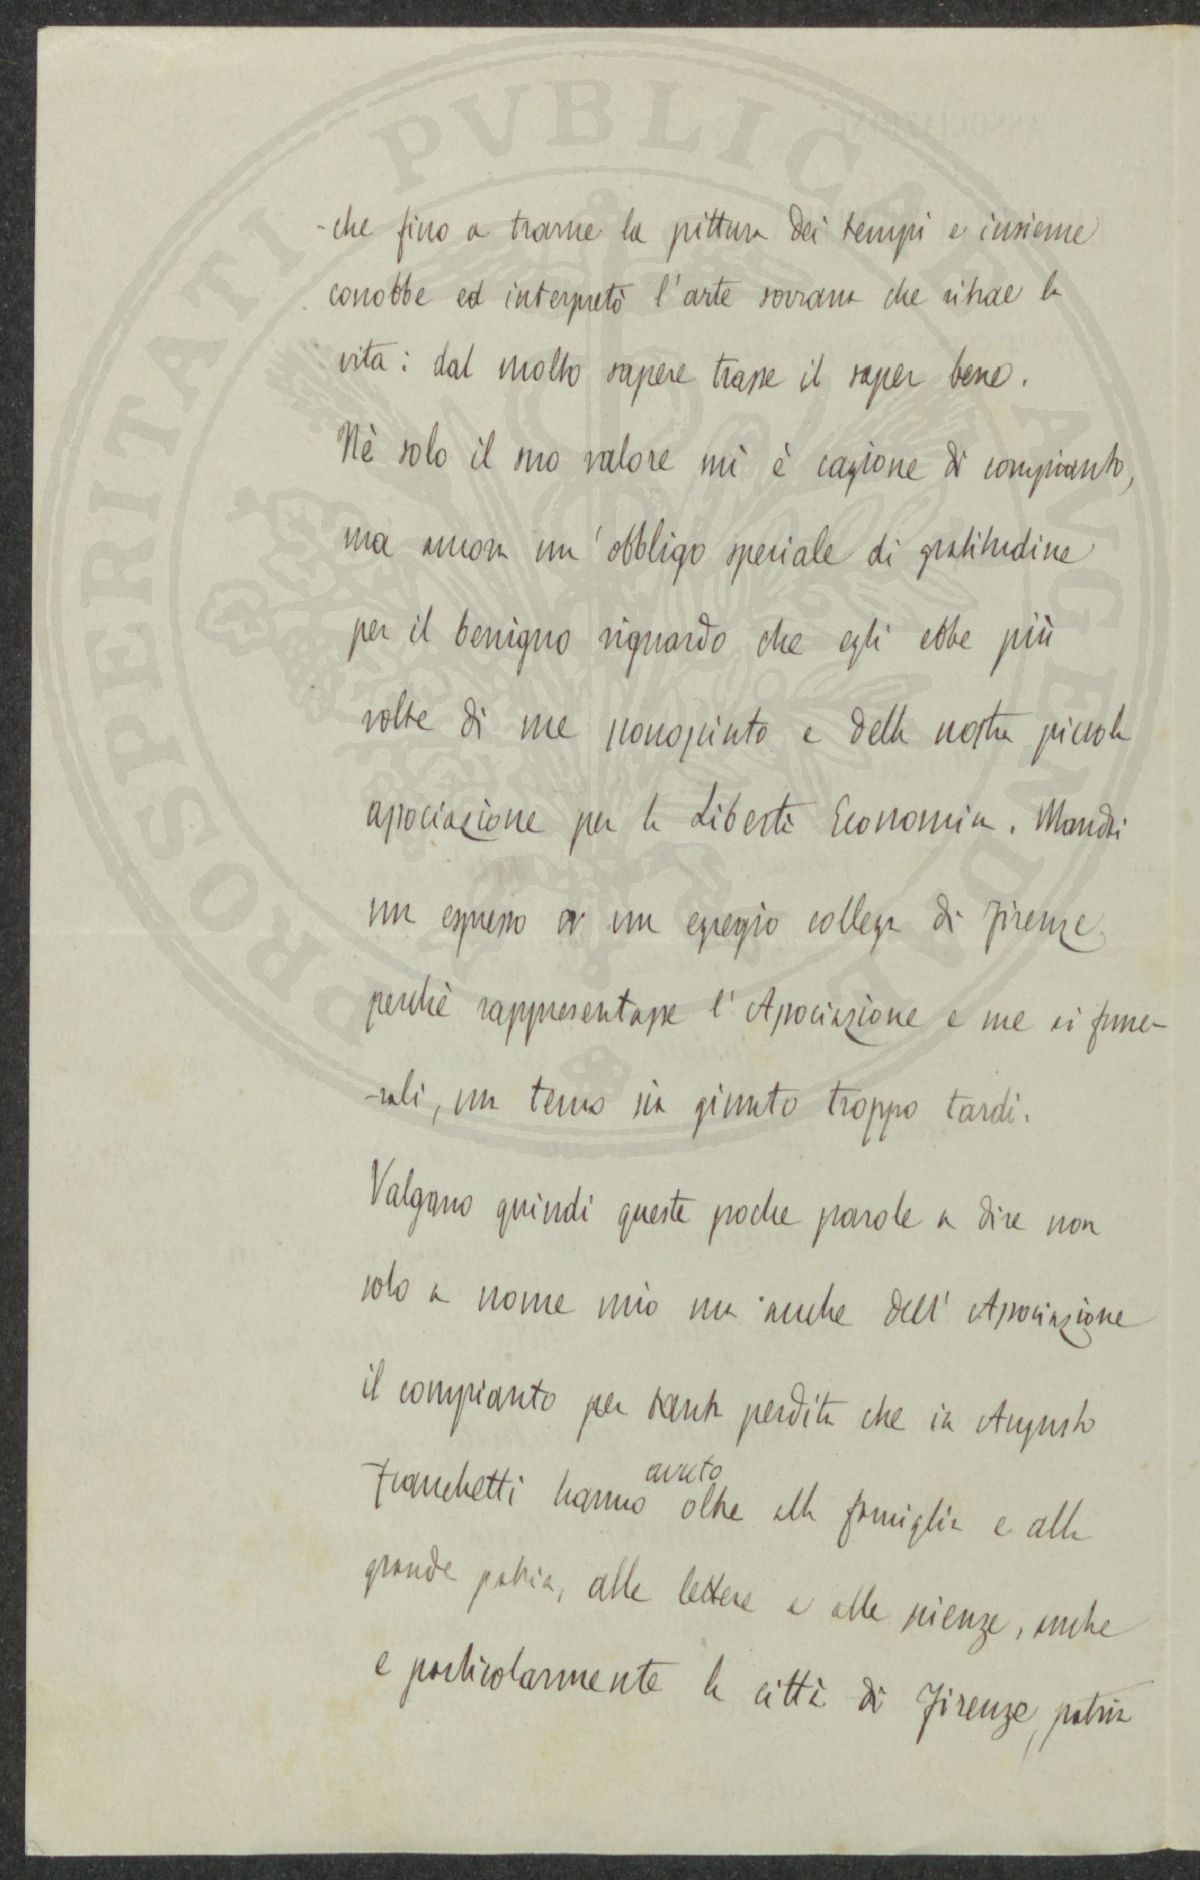 -che fino a trarne la pittura dei tempi e insieme
conobbe ed interpretò l'arte sovrana che ritrae la
vita: dal molto sapere trasse il saper bene.
Nè solo il suo valore mi è cagione di compianto,
ma ancora un'obbligo speciale di gratitudine
per il benigno riguardo che egli ebbe più
volte di me nonopinto e della nostra piccola
associazione per la Libertà Economica. Mandai
un espresso a un egregio collega di Firenze
perchè rappresentasse l'Associazione e me ai fune-
-rali, ma temo sia giunto troppo tardi.
Valgano quindi queste poche parole a dire non
solo a nome mio ma anche dell'Associazione
il compianto per tanta perdita che in Augusto
Franchetti hanno avuto oltre alla famiglia e alla
grande patria, alle lettere e alle scienze, anche
e particolarmente la città di Firenze, patria
PROSPERITATI PVBLICAE AVGENDAE
ASSOCIAZIONE